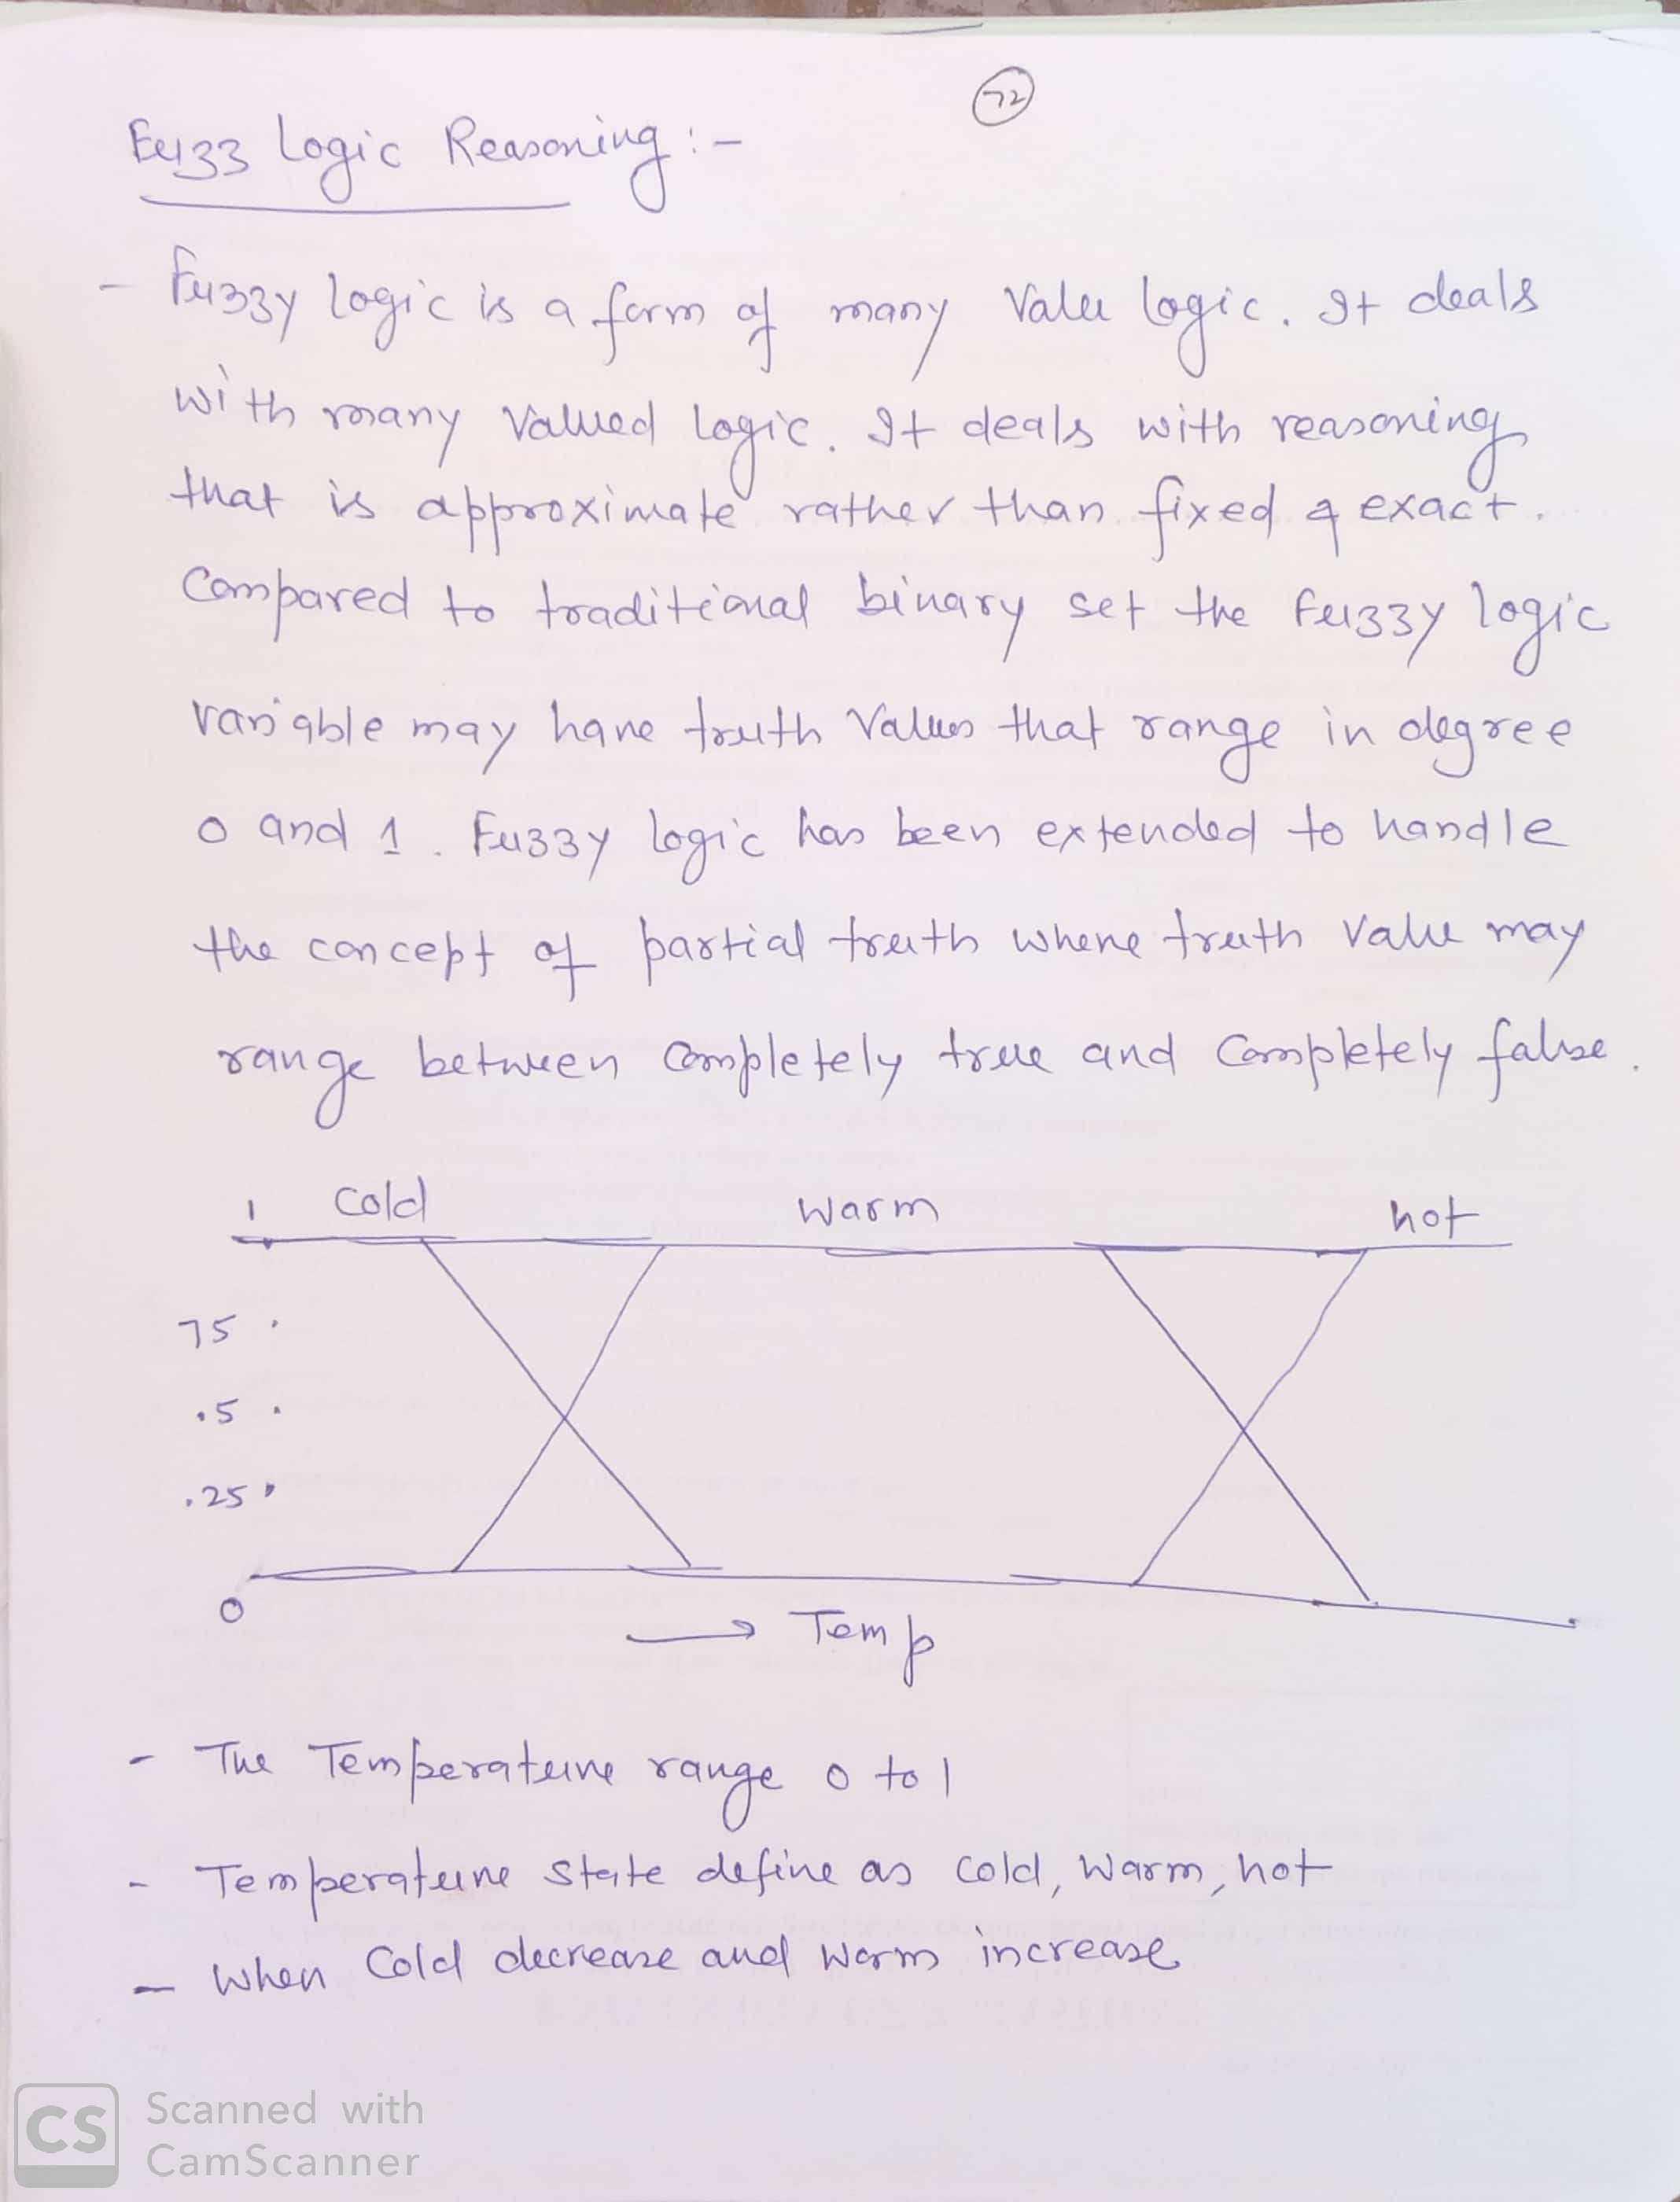 72
Fuzz Logic Reasoning :-
- Fuzzy logic is a form of many Value logic. It deals
with many Valued logic. It deals with reasoning
that is approximate rather than fixed & exact.
Compared to traditional binary set the fuzzy logic
variable may have truth Values that range in degree
0 and 1. Fuzzy logic has been extended to handle
the concept of partial truth where truth Value may
range between completely true and completely false.
1 cold warm hot
75
.5
.25
0
→ Temp
- The Temperature range 0 to 1
- Temperature state define as cold, warm, hot
- when cold decrease and warm increase
CS Scanned with
CamScanner